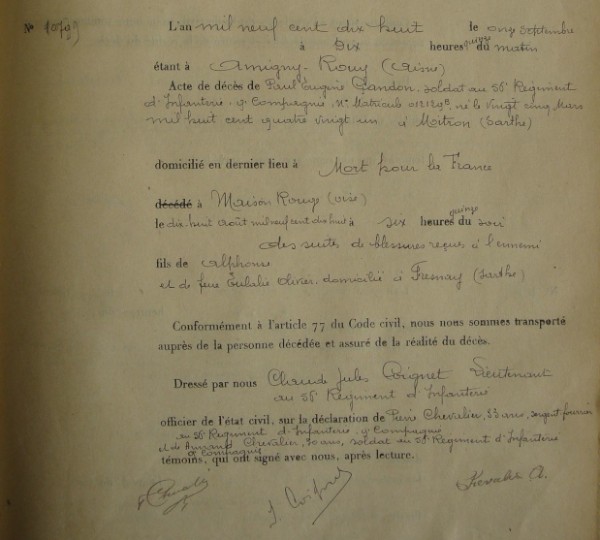 L'an mil neuf cent dix huit le onze septembre
à dix heures quinze du matin
étant à Amigny-Rouy (Aisne)
Acte de décès de Paul Eugène Gandon, soldat au 56e Regiment
d'Infanterie - 9e Compagnie, N° Matricule né le vingt cinq Mars
mil huit cent quatre vingt un à Mitron (Sarthe)
domicilié en dernier lieu à Mort pour la France
décédé à Maison Rouge (oise)
le dix-huit Août mil neuf cent dix huit à six heures quinze du soir
des suites de blessures reçues à l'ennemi
fils de Alphonse
et de feue Eulalie Olivier, domicilié à Fresnay (Sarthe)
Conformément à l'article 77 du Code civil, nous nous sommes transporté
auprès de la personne décédée et assuré de la réalité du décès.
Dressé par nous Claude Jules Lieutenant
au 56e Regiment d'Infanterie
officier de l'état civil, sur la déclaration de Pierre Chevalier, 33 ans, sergent fourrier
au 56e Regiment d'Infanterie 9e Compagnie
et de Armand Chevalier, 30 ans, soldat au 56e Regiment d'Infanterie
9e Compagnie
témoins, qui ont signé avec nous, après lecture.